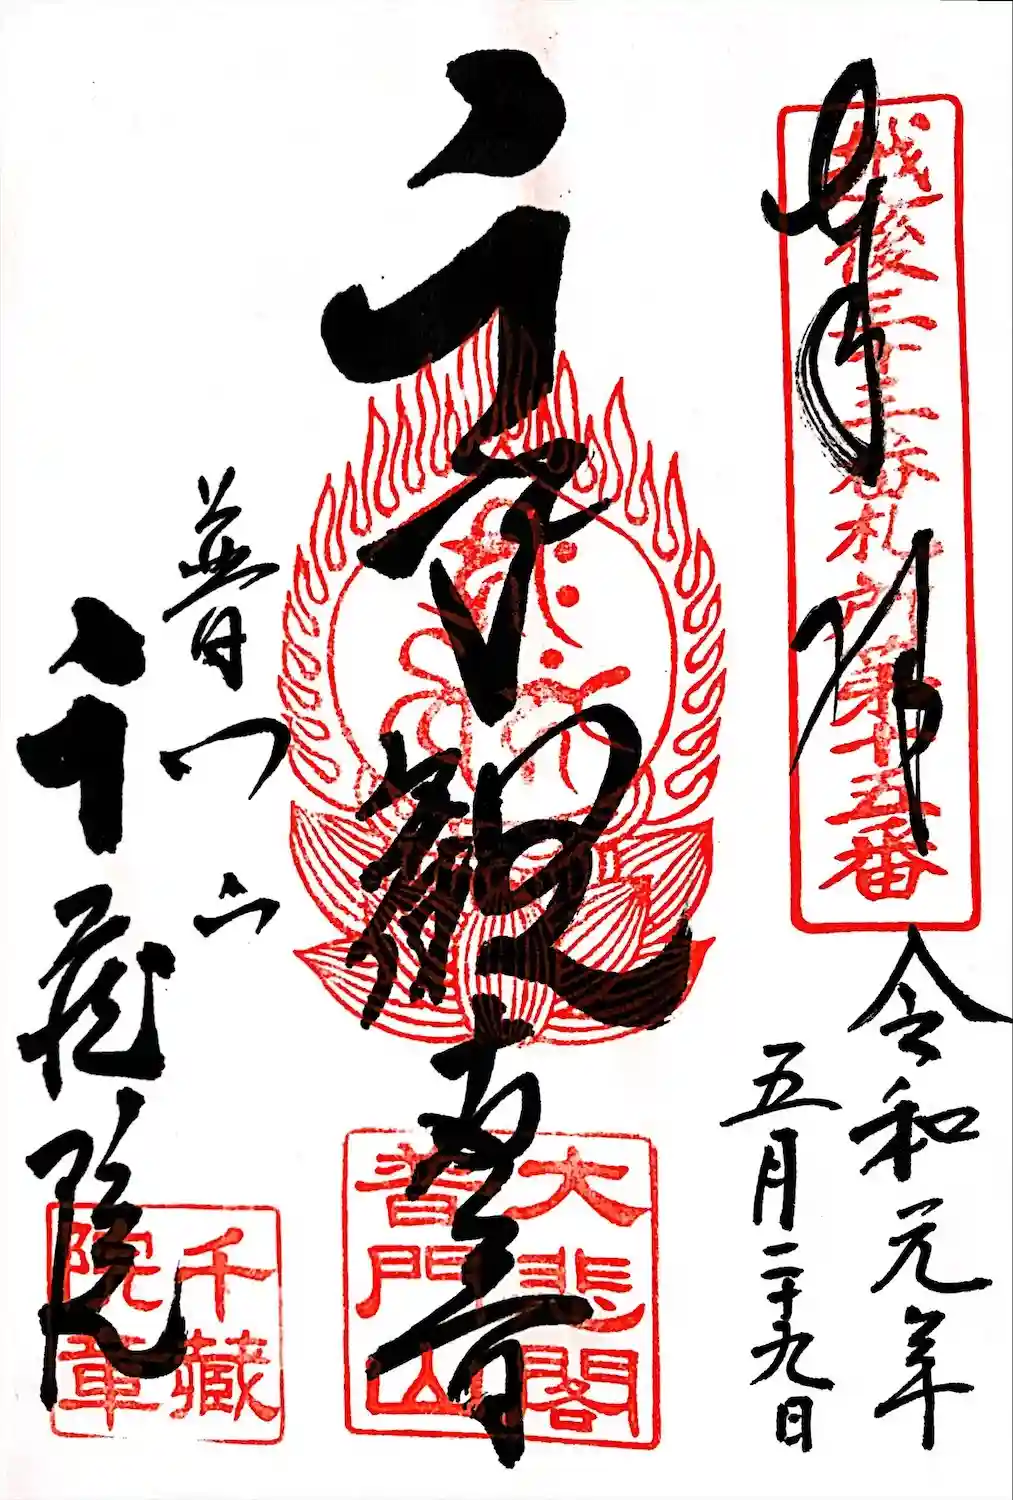 奉拝
越後三十三番札所第十五番
令和元年
五月二十九日
千手観世音
大悲閣
普門山
普門山
千蔵院
千蔵
院章